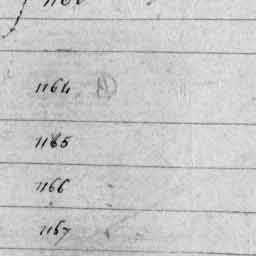 1164
1165
1166
1167